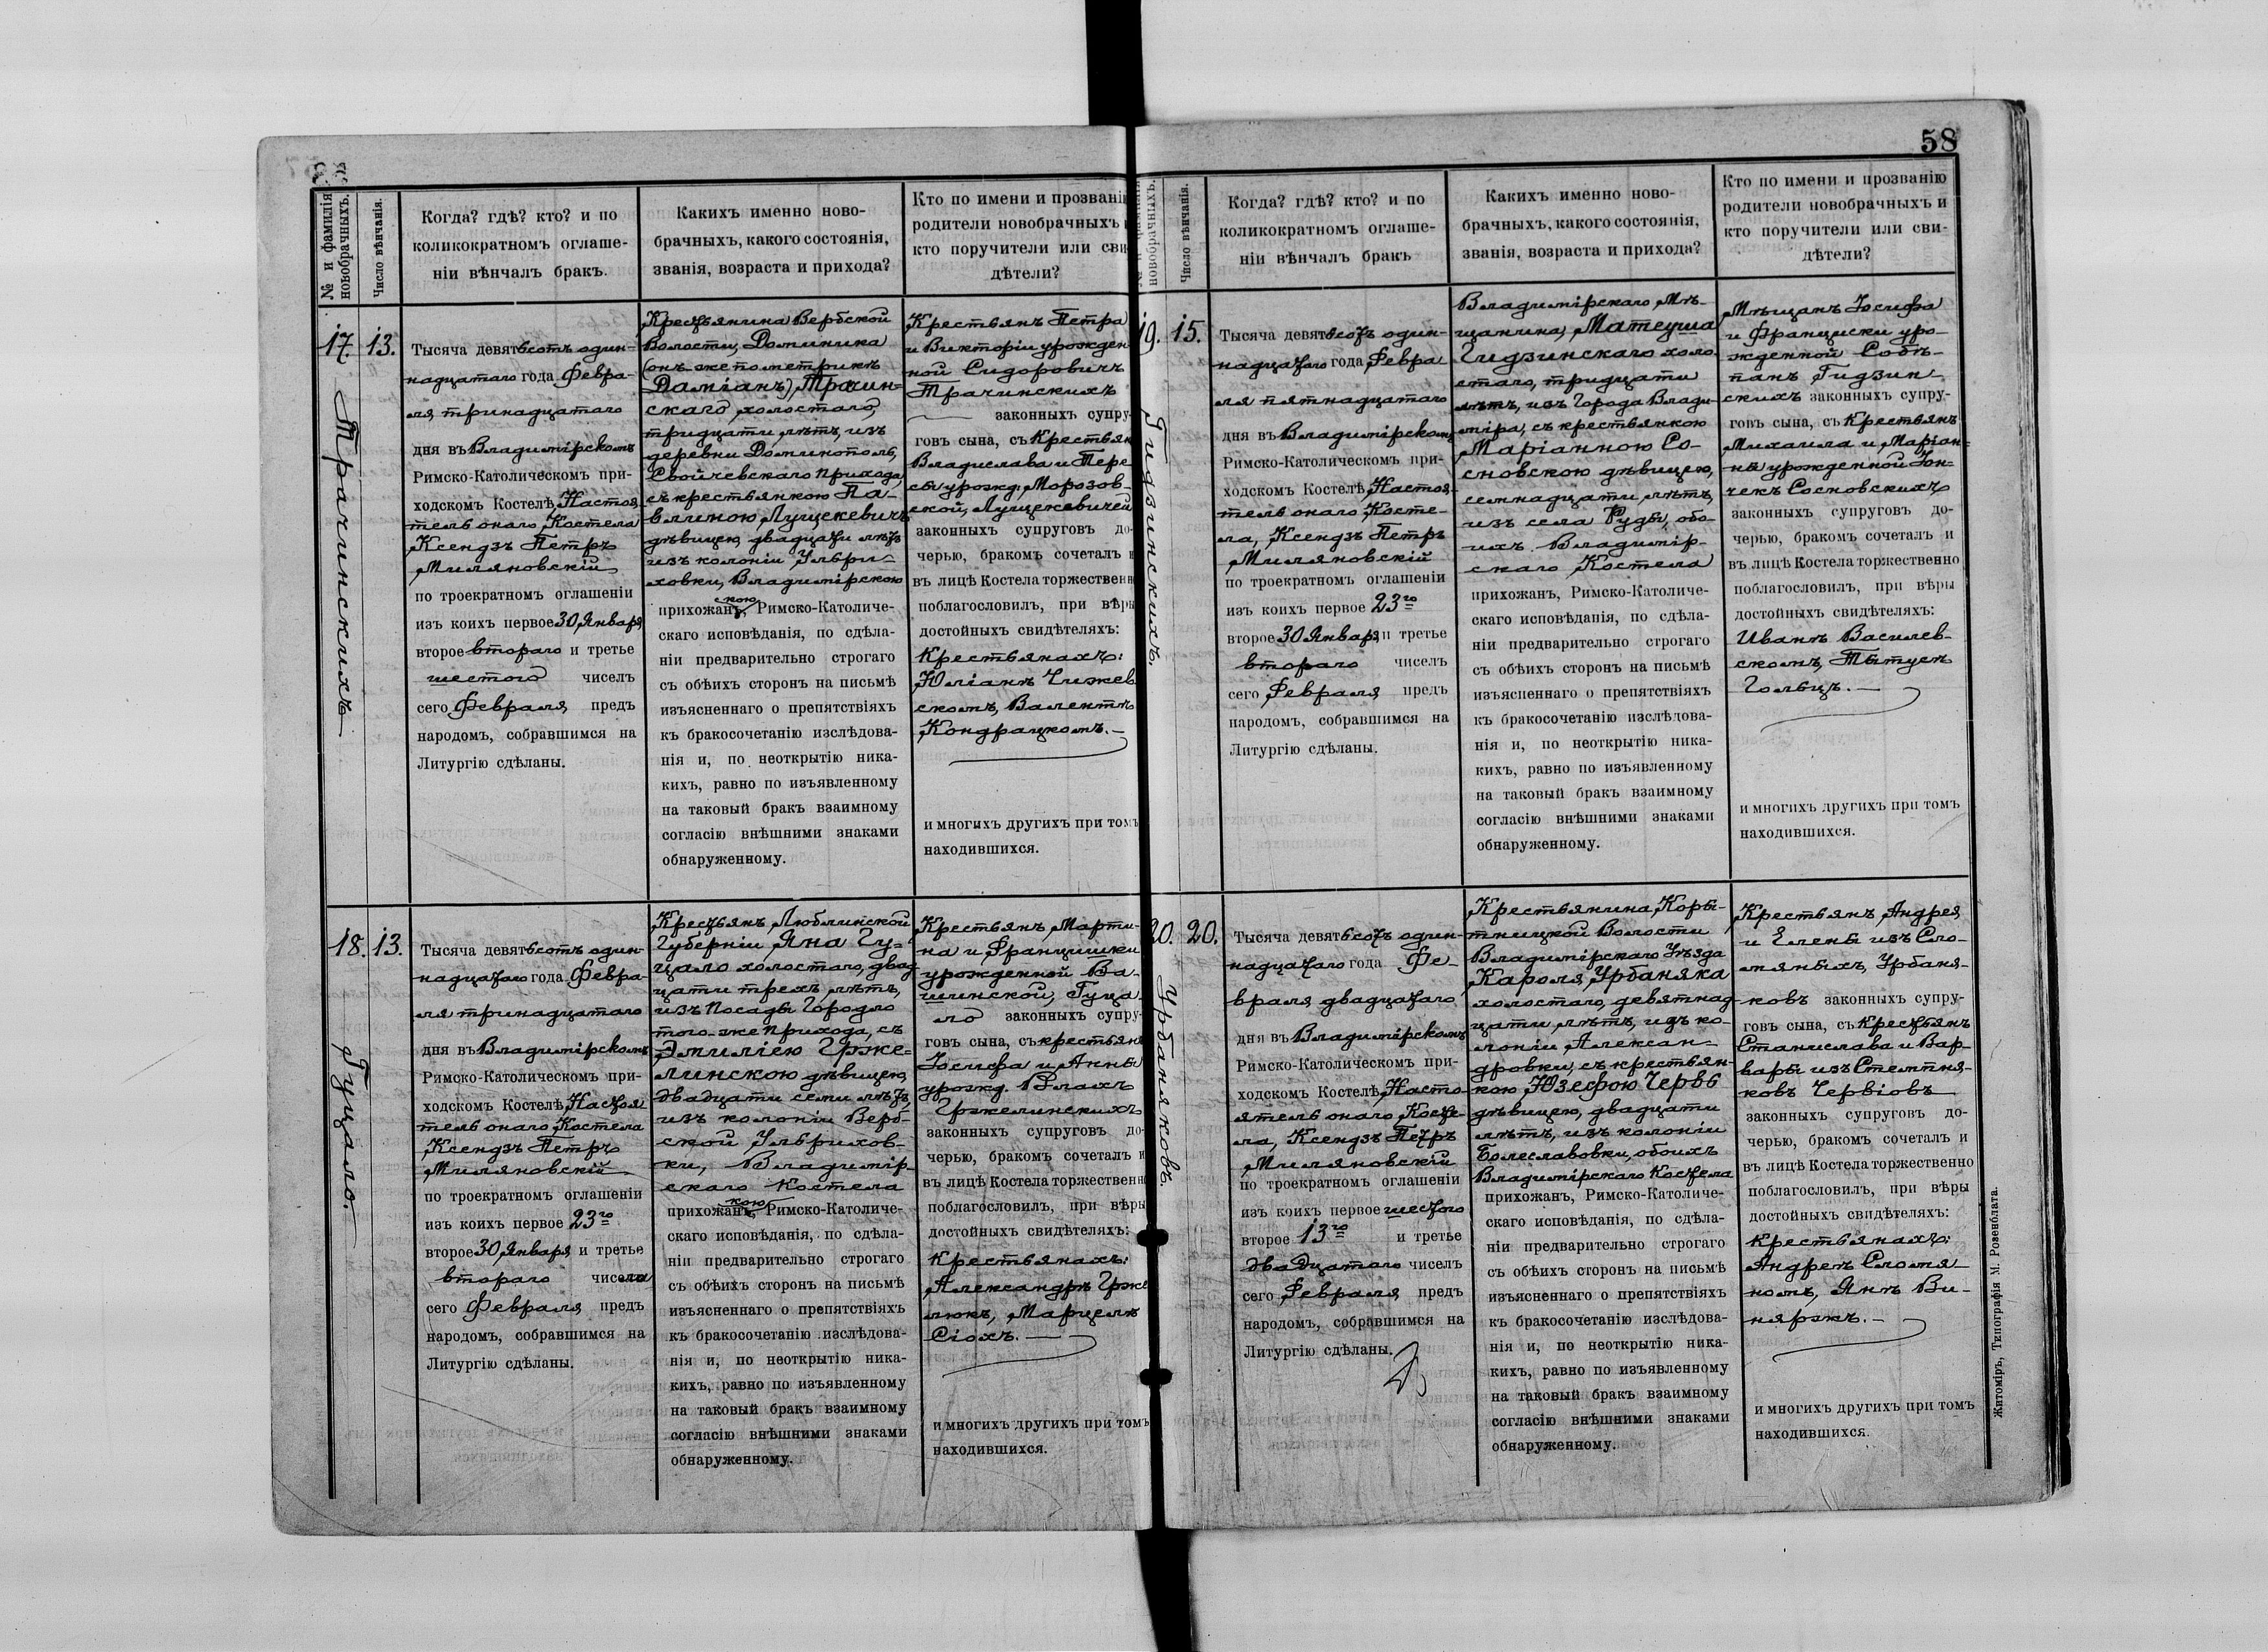 58
№ и фамилія новобрачныхъ.
Число вѣнчанія.
Когда? гдѣ? кто? и по
коликократномъ оглаше-
ніи вѣнчалъ бракъ.
Какихъ именно ново-
брачныхъ, какого состоянія,
званія, возраста и прихода?
Кто по имени и прозванію
родители новобрачныхъ и
кто поручители или сви
дѣтели?
17.
Трачинскихъ
13.
Тысяча девятьсотъ один-
надцатаго года Февра-
ля тринадцатаго
дня въ Владимірскомъ
Римско-Католическомъ при-
ходскомъ Костелѣ, Настоя-
тель онаго Костела
Ксендзъ Петръ
Миляновскій
по троекратномъ оглашеніи
изъ коихъ первое 30 Января
второе втораго и третье
шестого чиселъ
сего Февраля, предъ
народомъ, собравшимся на
Литургію сдѣланы.
Крестьянина Вербской
Волости, Доминика
(онъ-же по метрикѣ
Даміанъ) Трачин-
скаго, холостаго,
тридцати лѣтъ, изъ
деревни Доминополь,
Свойчевскаго прихода,
съ крестьянкою Па-
влиною Лущкевичъ
дѣвицею, двадцати лѣтъ
изъ колоніи Ульри-
ховки, Владимірскою
прихожанскою, Римско-Католиче-
скаго исповѣданія, по сдѣла-
ніи предварительно строгаго
съ обѣихъ сторонъ на письмѣ
изъясненнаго о препятствіяхъ
къ бракосочетанію изслѣдова-
нія и, по неоткрытію ника-
кихъ, равно по изъявленному
на таковый бракъ взаимному
согласію внѣшними знаками
обнаруженному.
Крестьянъ Петра
и Викторіи урожден
ной Сидоровичъ
Трачинскихъ
законныхъ супру-
говъ сына, съ Крестьян
Владислава и Тере
сы урожд. Морозов-
ской, Лущкевичей
законныхъ супруговъ до-
черью, бракомъ сочеталъ и
въ лицѣ Костела торжественн
поблагословилъ, при вѣры
достойныхъ свидѣтеляхъ:
Крестьянахъ:
Юліанѣ Чижев
скомъ, Валентѣ
Кондрацкомъ.
и многихъ другихъ при томъ
находившихся.
18.
Гуцало.
13.
Тысяча девятьсотъ один-
надцатаго года Февра-
ля тринадцатаго
дня въ Владимірскомъ
Римско-Католическомъ при-
ходскомъ Костелѣ, Настоя
тель онаго Костела
Ксендзъ Петръ
Миляновскій
по троекратномъ оглашеніи
изъ коихъ первое 23го
второе 30 Января и третье
втораго числа
сего Февраля, предъ
народомъ, собравшимся на
Литургію сдѣланы.
Крестьянъ Люблинской
Губерніи Яна Гу-
цало холостаго, двад
цати трехъ лѣтъ,
изъ Посады Городло
того-же прихода, съ
Эмиліею Грже-
линскою дѣвицею,
двадцати семи лѣтъ,
изъ колоніи Верб-
ской Ульрихов-
ки, Владимір-
скаго Костела
прихожанкою, Римско-Католиче-
скаго исповѣданія, по сдѣла-
ніи предварительно строгаго
съ обѣихъ сторонъ на письмѣ
изъясненнаго о препятствіяхъ
къ бракосочетанію изслѣдова-
нія и, по неоткрытію ника-
кихъ, равно по изъявленному
на таковый бракъ взаимному
согласію внѣшними знаками
обнаруженному.
Крестьянъ, Марти-
на и Францишки
урожденной Ва-
шинской, Гуца-
ло законныхъ супру-
говъ сына, съ крестьянъ
Іосифа и Анны
урожд. Влахъ
Гржелинскихъ
законныхъ супруговъ до-
черью, бракомъ сочеталъ и
въ лицѣ Костела торжественн
поблагословилъ, при вѣры
достойныхъ свидѣтеляхъ:
Крестьянахъ:
Александрѣ Грже
люкъ, Марцелѣ
Сіохъ.
и многихъ другихъ при томъ
находившихся.
новобрачныхъ.
Число вѣнчанія.
Когда? гдѣ? кто? и по
коликократномъ оглаше-
ніи вѣнчалъ бракъ
Какихъ именно ново-
брачныхъ, какого состоянія,
званія, возраста и прихода?
Кто по имени и прозванію
родители новобрачныхъ и
кто поручители или сви-
дѣтели?
19.
Гидзинскихъ.
15.
Тысяча девятьсотъ один-
надцатаго года Февра
ля пятнадцатаго
дня въ Владимірскомъ
Римско-Католическомъ при-
ходскомъ Костелѣ, Настоя-
тель онаго Косте-
ла, Ксендзъ Петръ
Миляновскій
по троекратномъ оглашеніи
изъ коихъ первое 23го
второе 30 Января и третье
втораго чиселъ
сего Февраля предъ
народомъ, собравшимся на
Литургію сдѣланы.
Владимірскаго Мѣ-
щанина, Матеуша
Гидзинскаго холо
стаго, тридцати
лѣтъ, изъ Города Влади-
міра, съ крестьянкою
Маріанною Со-
сновскою дѣвицею,
семнадцати лѣтъ,
изъ села Руды, обо-
ихъ Владимір-
скаго Костела
прихожанъ, Римско-Католиче-
скаго исповѣданія, по сдѣла-
ніи предварительно строгаго
съ обѣихъ сторонъ на письмѣ
изъясненнаго о препятствіяхъ
къ бракосочетанію изслѣдова-
нія и, по неоткрытію ника-
кихъ, равно по изъявленному
на таковый бракъ взаимному
согласію внѣшними знаками
обнаруженному.
Мѣщанъ Іосифа
и Франциски уро-
жденной Собѣ-
панъ Гидзин-
скихъ законныхъ супру-
говъ сына, съ Крестьянъ
Михаила и Маріан-
ны урожденной Іон-
чекъ Сосновскихъ
законныхъ супруговъ до-
черью, бракомъ сочеталъ и
въ лицѣ Костела торжественно
поблагословилъ, при вѣры
достойныхъ свидѣтеляхъ:
Иванѣ Василев-
скомъ, Тытусѣ
Гольцъ.
и многихъ другихъ при томъ
находившихся.
20.
Урбаняковъ.
20.
Тысяча девятьсотъ один-
надцатаго года Фе-
враля двадцатаго
дня въ Владимірскомъ
Римско-Католическомъ при-
ходскомъ Костелѣ, Насто-
ятель онаго Косте-
ла, Ксендзъ Петръ
Миляновскій
по троекратномъ оглашеніи
изъ коихъ первое шестого
второе 13го и третье
двадцатаго чиселъ
сего Февраля, предъ
народомъ, собравшимся на
Литургію сдѣланы.
Крестьянина, Коры-
тницкой Волости
Владимірскаго Уѣзда
Кароля Урбаняка
холостаго, девятнад
цати лѣтъ, изъ ко-
лоніи Алексан-
дровки, съ крестьян-
кою Юзефою Червь
дѣвицею, двадцати
лѣтъ, изъ колоніи
Болеславовки, обоихъ
Владимірскаго Костела
прихожанъ, Римско-Католиче-
скаго исповѣданія, по сдѣла-
ніи предварительно строгаго
съ обѣихъ сторонъ на письмѣ
изъясненнаго о препятствіяхъ
къ бракосочетанію изслѣдова-
нія и, по неоткрытію ника-
кихъ, равно по изъявленному
на таковый бракъ взаимному
согласію внѣшними знаками
обнаруженному.
Крестьянъ, Андрея
и Елены изъ Сло-
мяныхъ, Урбаня-
ковъ законныхъ супру-
говъ сына, съ Крестьянъ
Станислава и Вар-
вары изъ Стемпня-
ковъ Червіовъ
законныхъ супруговъ до-
черью, бракомъ сочеталъ и
въ лицѣ Костела торжественно
поблагословилъ, при вѣры
достойныхъ свидѣтеляхъ:
Крестьянахъ:
Андреѣ Сломя
номъ, Янѣ Ви-
няржъ.
и многихъ другихъ при томъ
находившихся.
Житоміръ, Типографія М. Розенблата.